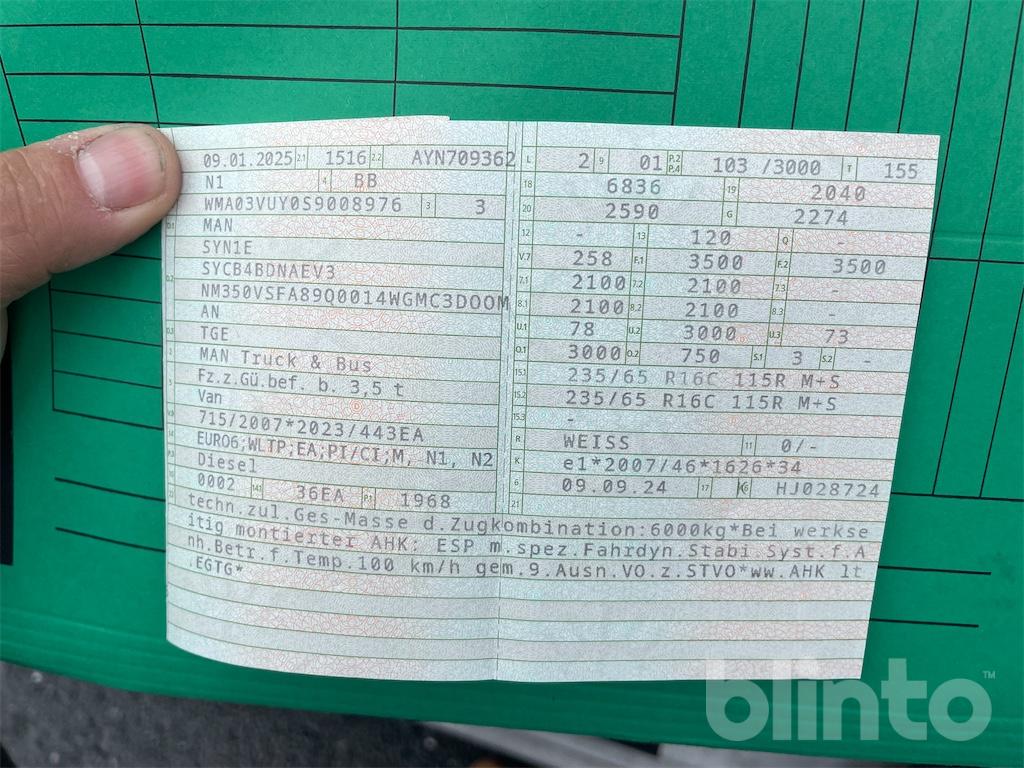 09.01.2025 2.1 1516 2.2 AYN709362
N1 4 BB
WMA03VUY0S9008976 3 3
D.1 MAN
SYN1E
SYCB4BDNAEV3
D.2 NM350VSFA89Q0014WGMC3DOOM
AN
D.3 TGE
2 MAN Truck & Bus
5 Fz.z.Gü.bef. b. 3,5 t
Van
V.9 715/2007*2023/443EA
14 EURO6;WLTP;EA;PI/CI;M, N1, N2
P.3 Diesel
10 0002 14.1 36EA P.1 1968
L 2 9 01 P.2 P.4 103 /3000 T 155
18 6836 19 2040
20 2590 G 2274
12 - 13 120 Q -
V.7 258 F.1 3500 F.2 3500
7.1 2100 7.2 2100 7.3 -
8.1 2100 8.2 2100 8.3 -
U.1 78 U.2 3000 U.3 73
O.1 3000 O.2 750 S.1 3 S.2 -
15.1 235/65 R16C 115R M+S
15.2 235/65 R16C 115R M+S
15.3 -
R WEISS 11 0/-
K e1*2007/46*1626*34
6 09.09.24 17 16 HJ028724
21
22 techn.zul.Ges-Masse d.Zugkombination:6000kg*Bei werkse
itig montierter AHK: ESP m.spez.Fahrdyn.Stabi Syst.f.A
nh.Betr.f.Temp.100 km/h gem.9.Ausn.VO.z.STVO*ww.AHK lt
.EGTG*
blinto™